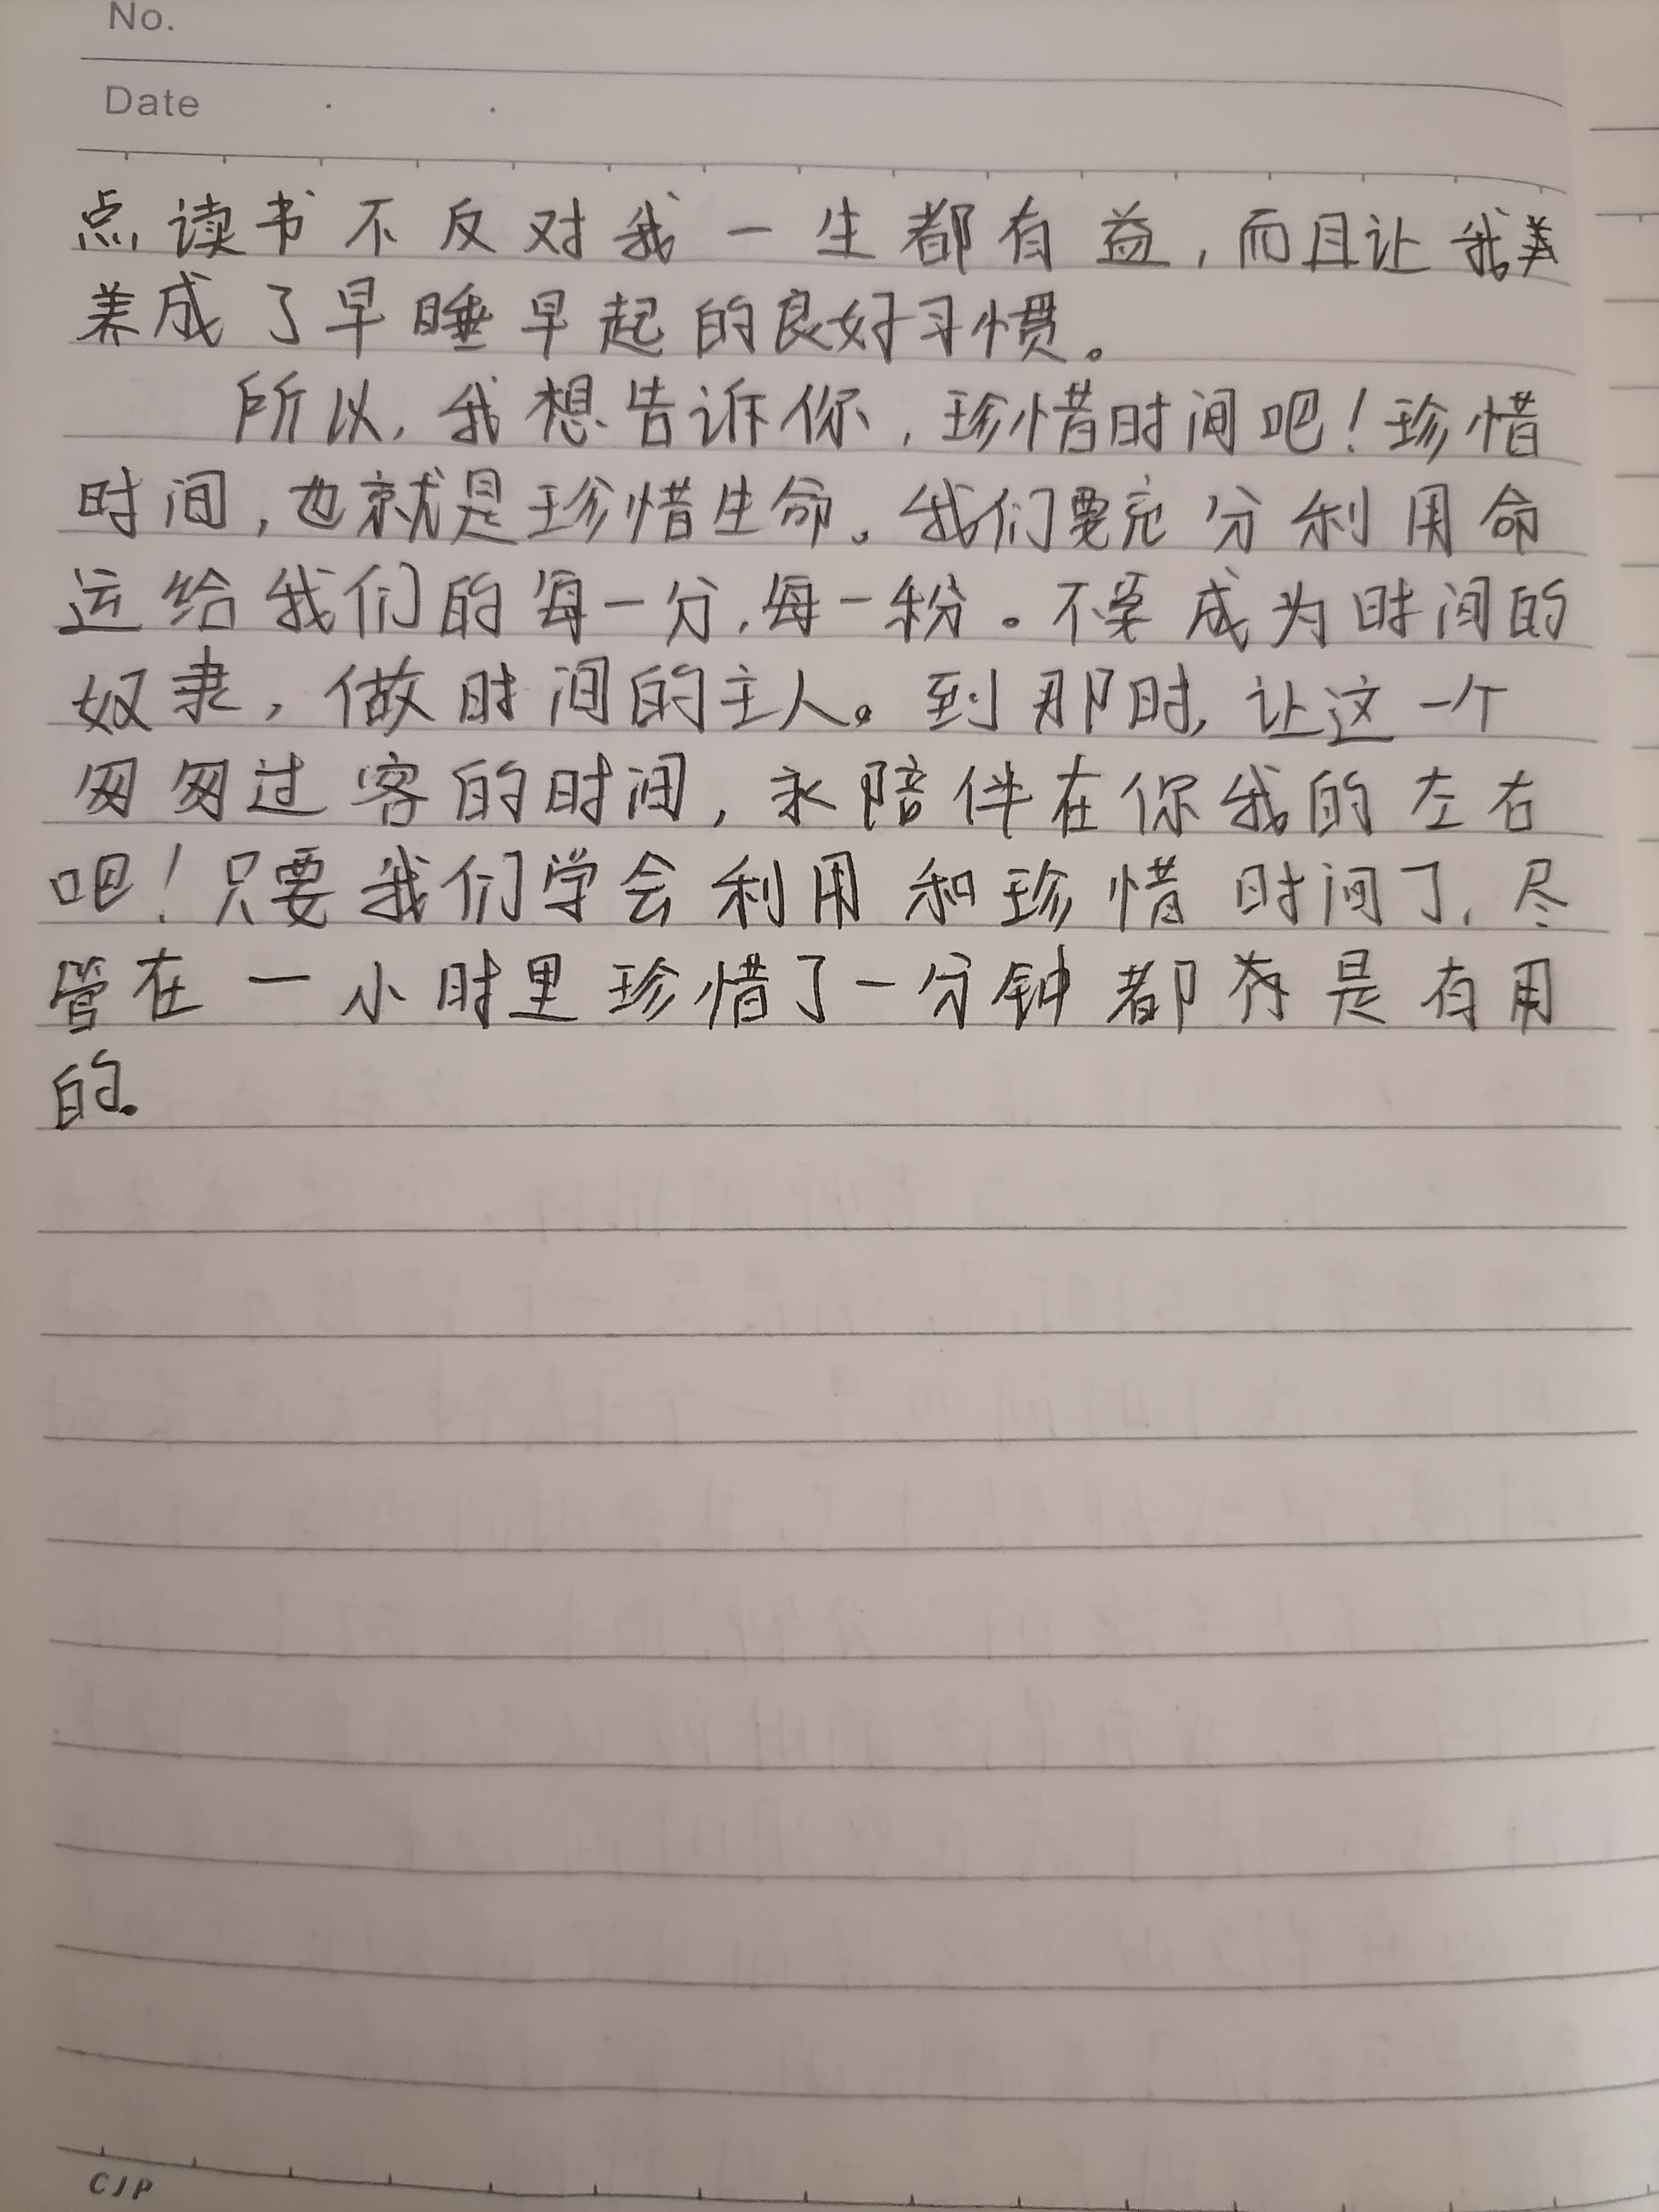 No.
Date
点读书不反对我一生都有益,而且让我
养成了早睡早起的良好习惯。
所以,我想告诉你,珍惜时间吧!珍惜
时间,也就是珍惜生命。我们要充分利用命
运给我们的每一分,每一秒。不要成为时间的
奴隶,做时间的主人。到那时,让这一个
匆匆过客的时间,永陪伴在你我的左右
吧!只要我们学会利用和珍惜时间了,尽
管在一小时里珍惜了一分钟都是有用
的。
CJP